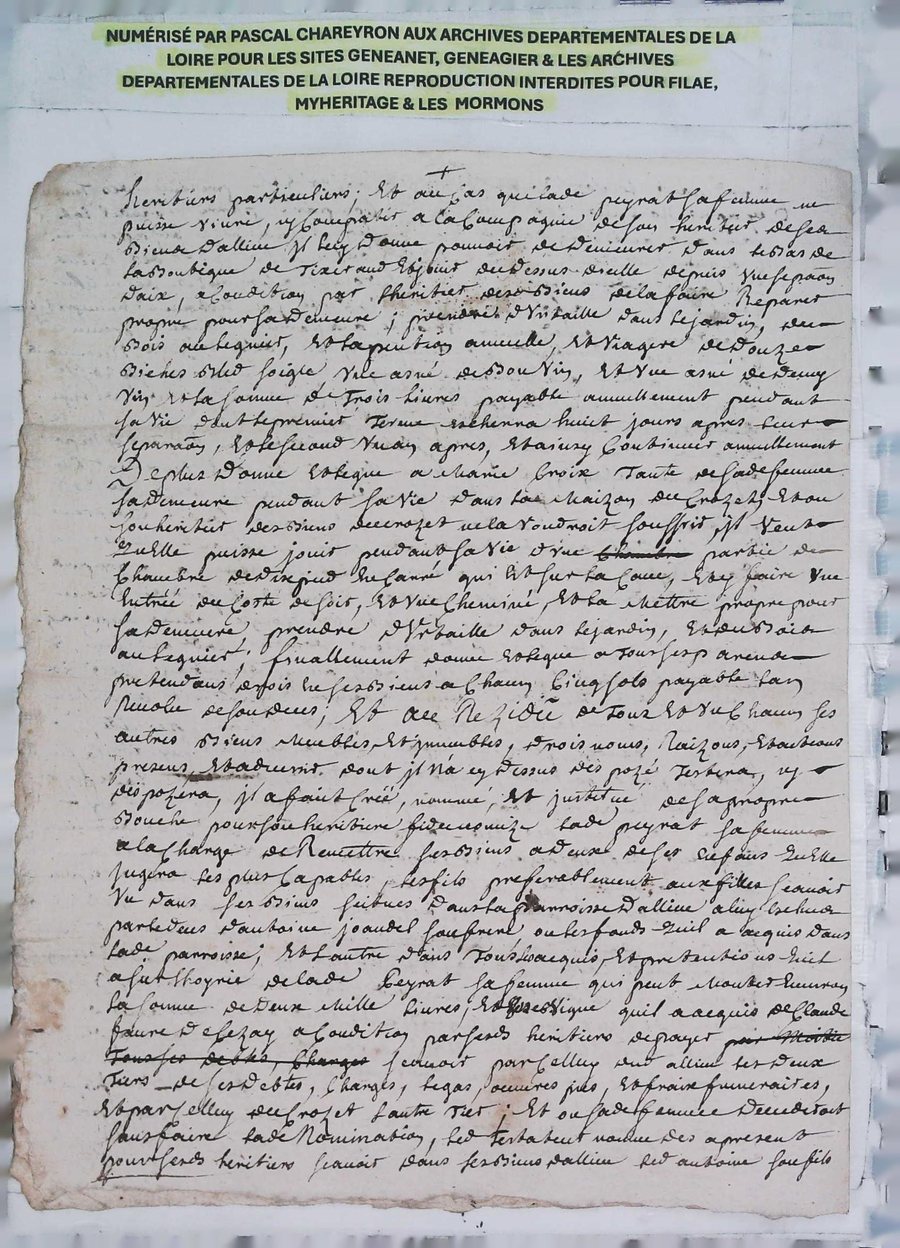 NUMÉRISÉ PAR PASCAL CHAREYRON AUX ARCHIVES DEPARTEMENTALES DE LA
LOIRE POUR LES SITES GENEANET, GENEAGIER & LES ARCHIVES
DEPARTEMENTALES DE LA LOIRE REPRODUCTION INTERDITES POUR FILAE,
MYHERITAGE & LES MORMONS
heritiers particuliers, Et au Cas que lade peyrat sa femme ne
puisse vivre, ny Compatir a la Compagnie de son heritier de ses
Biens dallieu jl luy Donne pouvoir de Demeurer dans le bas de
la Boutique de Tixerand Et jouir du Dessus dicelle depuis
a Condition par lheritier desds Biens de la faire Reparer
propre pour sa Demeure, prendre dans le jardin, du
Bois au Legnier, Et la pention annuelle, Et Viagere de Douze
Biches Bled soigle Vne asné de Bon Vin, Et Vne asné de Demy
Vin Et la somme de Trois Livres payable annuellement pendant
sa Vie dont le premier Terme Escherra huict jours apres leur
separaon, Et le second Vn an apres, Et ainsy Continuer annuellement
De plus Donne Et legue a Marie Croix Tante de sade femme
sa Demeure pendant sa Vie dans la Maizon du Crozet, Et ou
son heritier des Biens du crozet ne la Voudroit souffrir, jl Veut
quelle puisse jouir pendant sa Vie dVne partie de
Chambre de pied En Carré qui Est sur la Cave, Et y faire Vne
Entrée du Costé de soir, Et Vne Cheminé, Et la Mettre propre pour
sa Demeure, prendre dans le jardin, Et du Bois
au Legnier; finallement donne Et legue a Tous ses parens
pretendans drois En ses Biens a Chacun Cinq sols payable lan
Revolu de son deces; Et au Rezidu de Tous Et Vn Chacun ses
autres Biens Meubles, Et jmmeubles, drois noms, Raizons, Et actions
presens, Et advenir dont jl Na Cy Dessus dispozé Testera, ny
dispozera, jl a fait Créé, nommé, Et jnstitué de sa propre
Bouche pour son heritiere lade peyrat sa femme
a la Charge de Remettre ses Biens a deux de ses Enfans quelle
jugera les plus Capables, les fils preferablement aux filles scavoir
Vn dans ses Biens scitues dans la parroisse dallieu a luy
dantoine joandel son frere ou les fonds quil a acquis dans
lade parroisse; Et lautre dans Tous Et pretentions quil
a sur lhoyrie de lade Peyrat sa femme qui peut Monter Environ
la somme de Deux Mille Livres, Et Vigne quil a acquis de Claude
faure De Cezay a Condition par sesds heritiers de payer par Moitié
Tous ses debtes, Charges scavoir par Celluy dud allieu les deux
Tiers de ses Debtes, Charges, legas, oeuvres pies, Et fraix funeraires,
Et par Celluy du Crozet lautre Tier; Et ou sade femme Decederoit
sans faire lade Nomination, led Testateur nomme des a present
pour sesds heritiers scavoir dans ses Biens dallieu led antoine son fils